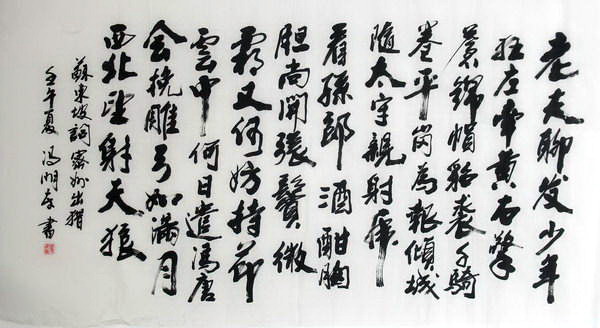 老夫聊发少年
狂左牵黄右擎
苍锦帽貂裘千骑
卷平岗为报倾城
随太守亲射虎
看孙郎酒酣胸
胆尚开张鬓微
霜又何妨持节
云中何日遣冯唐
会挽雕弓如满月
西北望射天狼
苏东坡词密州出猎
壬午夏冯明春书